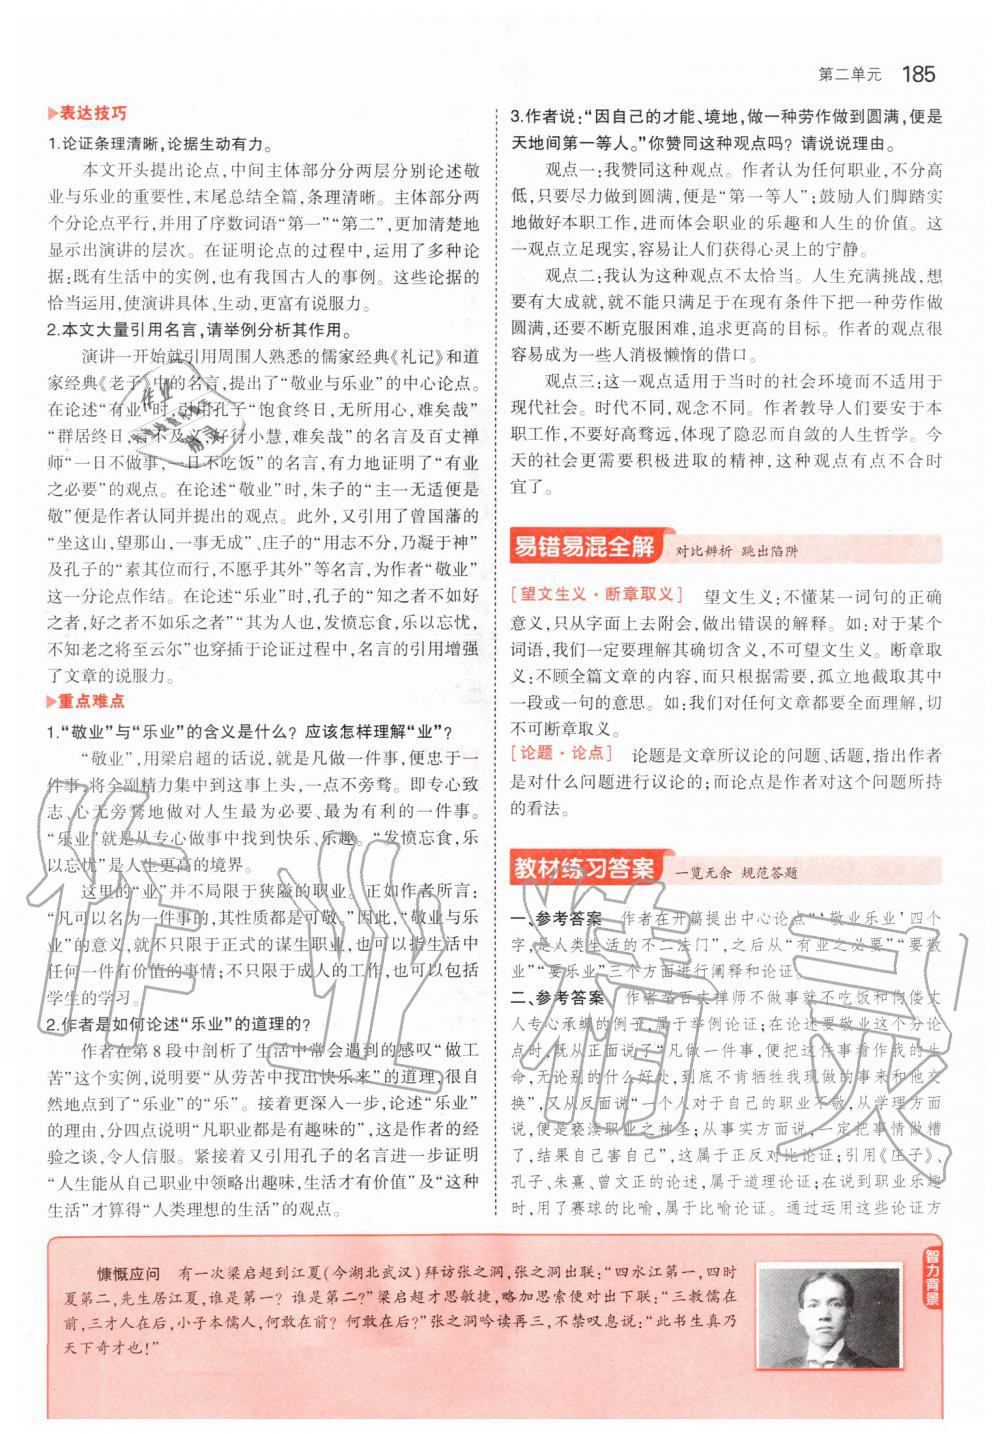 第二单元 185
▶表达技巧
1.论证条理清晰,论据生动有力。
本文开头提出论点,中间主体部分分两层分别论述敬
业与乐业的重要性,末尾总结全篇,条理清晰。主体部分两
个分论点平行,并用了序数词语“第一”“第二”,更加清楚地
显示出演讲的层次。在证明论点的过程中,运用了多种论
据:既有生活中的实例,也有我国古人的事例。这些论据的
恰当运用,使演讲具体、生动,更富有说服力。
2.本文大量引用名言,请举例分析其作用。
演讲一开始就引用周围人熟悉的儒家经典《礼记》和道
家经典《老子》中的名言,提出了“敬业与乐业”的中心论点。
在论述“有业”时,引用孔子“饱食终日,无所用心,难矣哉”
“群居终日,言不及义,好行小慧,难矣哉”的名言及百丈禅
师“一日不做事,一日不吃饭”的名言,有力地证明了“有业
之必要”的观点。在论述“敬业”时,朱子的“主一无适便是
敬”便是作者认同并提出的观点。此外,又引用了曾国藩的
“坐这山,望那山,一事无成”、庄子的“用志不分,乃凝于神”
及孔子的“素其位而行,不愿乎其外”等名言,为作者“敬业”
这一分论点作结。在论述“乐业”时,孔子的“知之者不如好
之者,好之者不如乐之者”“其为人也,发愤忘食,乐以忘忧,
不知老之将至云尔”也穿插于论证过程中,名言的引用增强
了文章的说服力。
▶重点难点
1.“敬业”与“乐业”的含义是什么?应该怎样理解“业”?
“敬业”,用梁启超的话说,就是凡做一件事,便忠于一
件事,将全副精力集中到这事上头,一点不旁骛。即专心致
志、心无旁骛地做对人生最为必要、最为有利的一件事。
“乐业”就是从专心做事中找到快乐、乐趣。“发愤忘食,乐
以忘忧”是人生更高的境界。
这里的“业”并不局限于狭隘的职业。正如作者所言:
“凡可以名为一件事的,其性质都是可敬。”因此,“敬业与乐
业”的意义,就不只限于正式的谋生职业,也可以指生活中
任何一件有价值的事情;不只限于成人的工作,也可以包括
学生的学习。
2.作者是如何论述“乐业”的道理的?
作者在第8段中剖析了生活中常会遇到的感叹“做工
苦”这个实例,说明要“从劳苦中找出快乐来”的道理,很自
然地点到了“乐业”的“乐”。接着更深入一步,论述“乐业”
的理由,分四点说明“凡职业都是有趣味的”,这是作者的经
验之谈,令人信服。紧接着又引用孔子的名言进一步证明
“人生能从自己职业中领略出趣味,生活才有价值”及“这种
生活”才算得“人类理想的生活”的观点。
3.作者说:“因自己的才能、境地,做一种劳作做到圆满,便是
天地间第一等人。”你赞同这种观点吗?请说说理由。
观点一:我赞同这种观点。作者认为任何职业,无论高
低,只要尽力做到圆满,便是“第一等人”;鼓励人们脚踏实
地做好本职工作,进而体会职业的乐趣和人生的价值。这
一观点立足现实,容易让人们获得心灵上的宁静。
观点二:我认为这种观点不太恰当。人生充满挑战,想
要有大成就,就不能只满足于在现有条件下把一种劳作做
圆满,还要不断克服困难,追求更高的目标。作者的观点很
容易成为一些人消极懒惰的借口。
观点三:这一观点适用于当时的社会环境而不适用于
现代社会。时代不同,观念不同。作者教导人们要安于本
职工作,不要好高骛远,体现了隐忍而自敛的人生哲学。今
天的社会更需要积极进取的精神,这种观点有点不合时
宜了。
易错易混全解 对比辨析 跳出陷阱
[望文生义·断章取义] 望文生义:不懂某一词句的正确
意义,只从字面上去附会,做出错误的解释。如:对于某个
词语,我们一定要理解其确切含义,不可望文生义。断章取
义:不顾全篇文章的内容,而只根据需要,孤立地截取其中
一段或一句的意思。如:我们对任何文章都要全面理解,切
不可断章取义。
[论题·论点] 论题是文章所议论的问题、话题,指出作者
是对什么问题进行议论的;而论点是作者对这个问题所持
的看法。
教材练习答案 一览无余 规范答题
一、参考答案 作者在开篇提出中心论点“‘敬业乐业’四个
字,是人类生活的不二法门”,之后从“有业之必要”“要敬
业”“要乐业”三个方面进行阐释和论证。
二、参考答案 作者举百丈禅师不做事就不吃饭和佝偻丈
人专心承蜩的例子,属于举例论证;在论述要敬业这个分论
点时,既从正面说了“凡做一件事,便把这件事看作我的生
命,无论别的什么好处,到底不肯牺牲我现做的事来和他交
换”,又从反面说“一个人对于自己的职业不敬,从学理方面
说,便是亵渎职业之神圣;从事实方面说,一定把事情做糟
了,结果自己害自己”,这属于正反对比论证;引用《庄子》、
孔子、朱熹、曾文正的论述,属于道理论证;在说到职业乐趣
时,用了赛球的比喻,属于比喻论证。通过运用这些论证方
智力背景
慷慨应问 有一次梁启超到江夏(今湖北武汉)拜访张之洞,张之洞出联:“四水江第一,四时
夏第二,先生居江夏,谁是第一?谁是第二?”梁启超才思敏捷,略加思索便对出下联:“三教儒在
前,三才人在后,小子本儒人,何敢在前?何敢在后?”张之洞吟读再三,不禁叹息说:“此书生真乃
天下奇才也!”
作业精灵